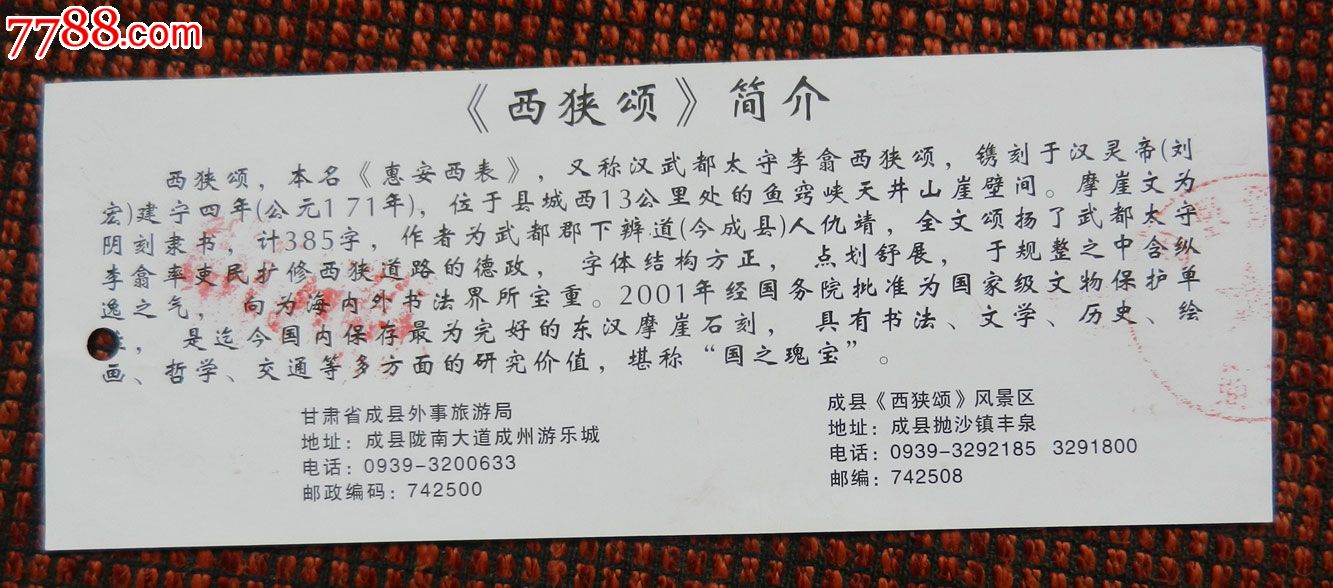 7788.com
《西狭颂》简介
西狭颂，本名《惠安西表》，又称汉武都太守李翕西狭颂，镌刻于汉灵帝(刘
宏)建宁四年(公元171年)，位于县城西13公里处的鱼窍峡天井山崖壁间。摩崖文为
阴刻隶书，计385字，作者为武都郡下辨道(今成县)人仇靖，全文颂扬了武都太守
李翕率吏民扩修西狭道路的德政，字体结构方正，点划舒展，于规整之中含纵
逸之气，向为海内外书法界所宝重。2001年经国务院批准为国家级文物保护单
，是迄今国内保存最为完好的东汉摩崖石刻，具有书法、文学、历史、绘
画、哲学、交通等多方面的研究价值，堪称“国之瑰宝”。
甘肃省成县外事旅游局
地址：成县陇南大道成州游乐城
电话：0939-3200633
邮政编码：742500
成县《西狭颂》风景区
地址：成县抛沙镇丰泉
电话：0939-3292185 3291800
邮编：742508